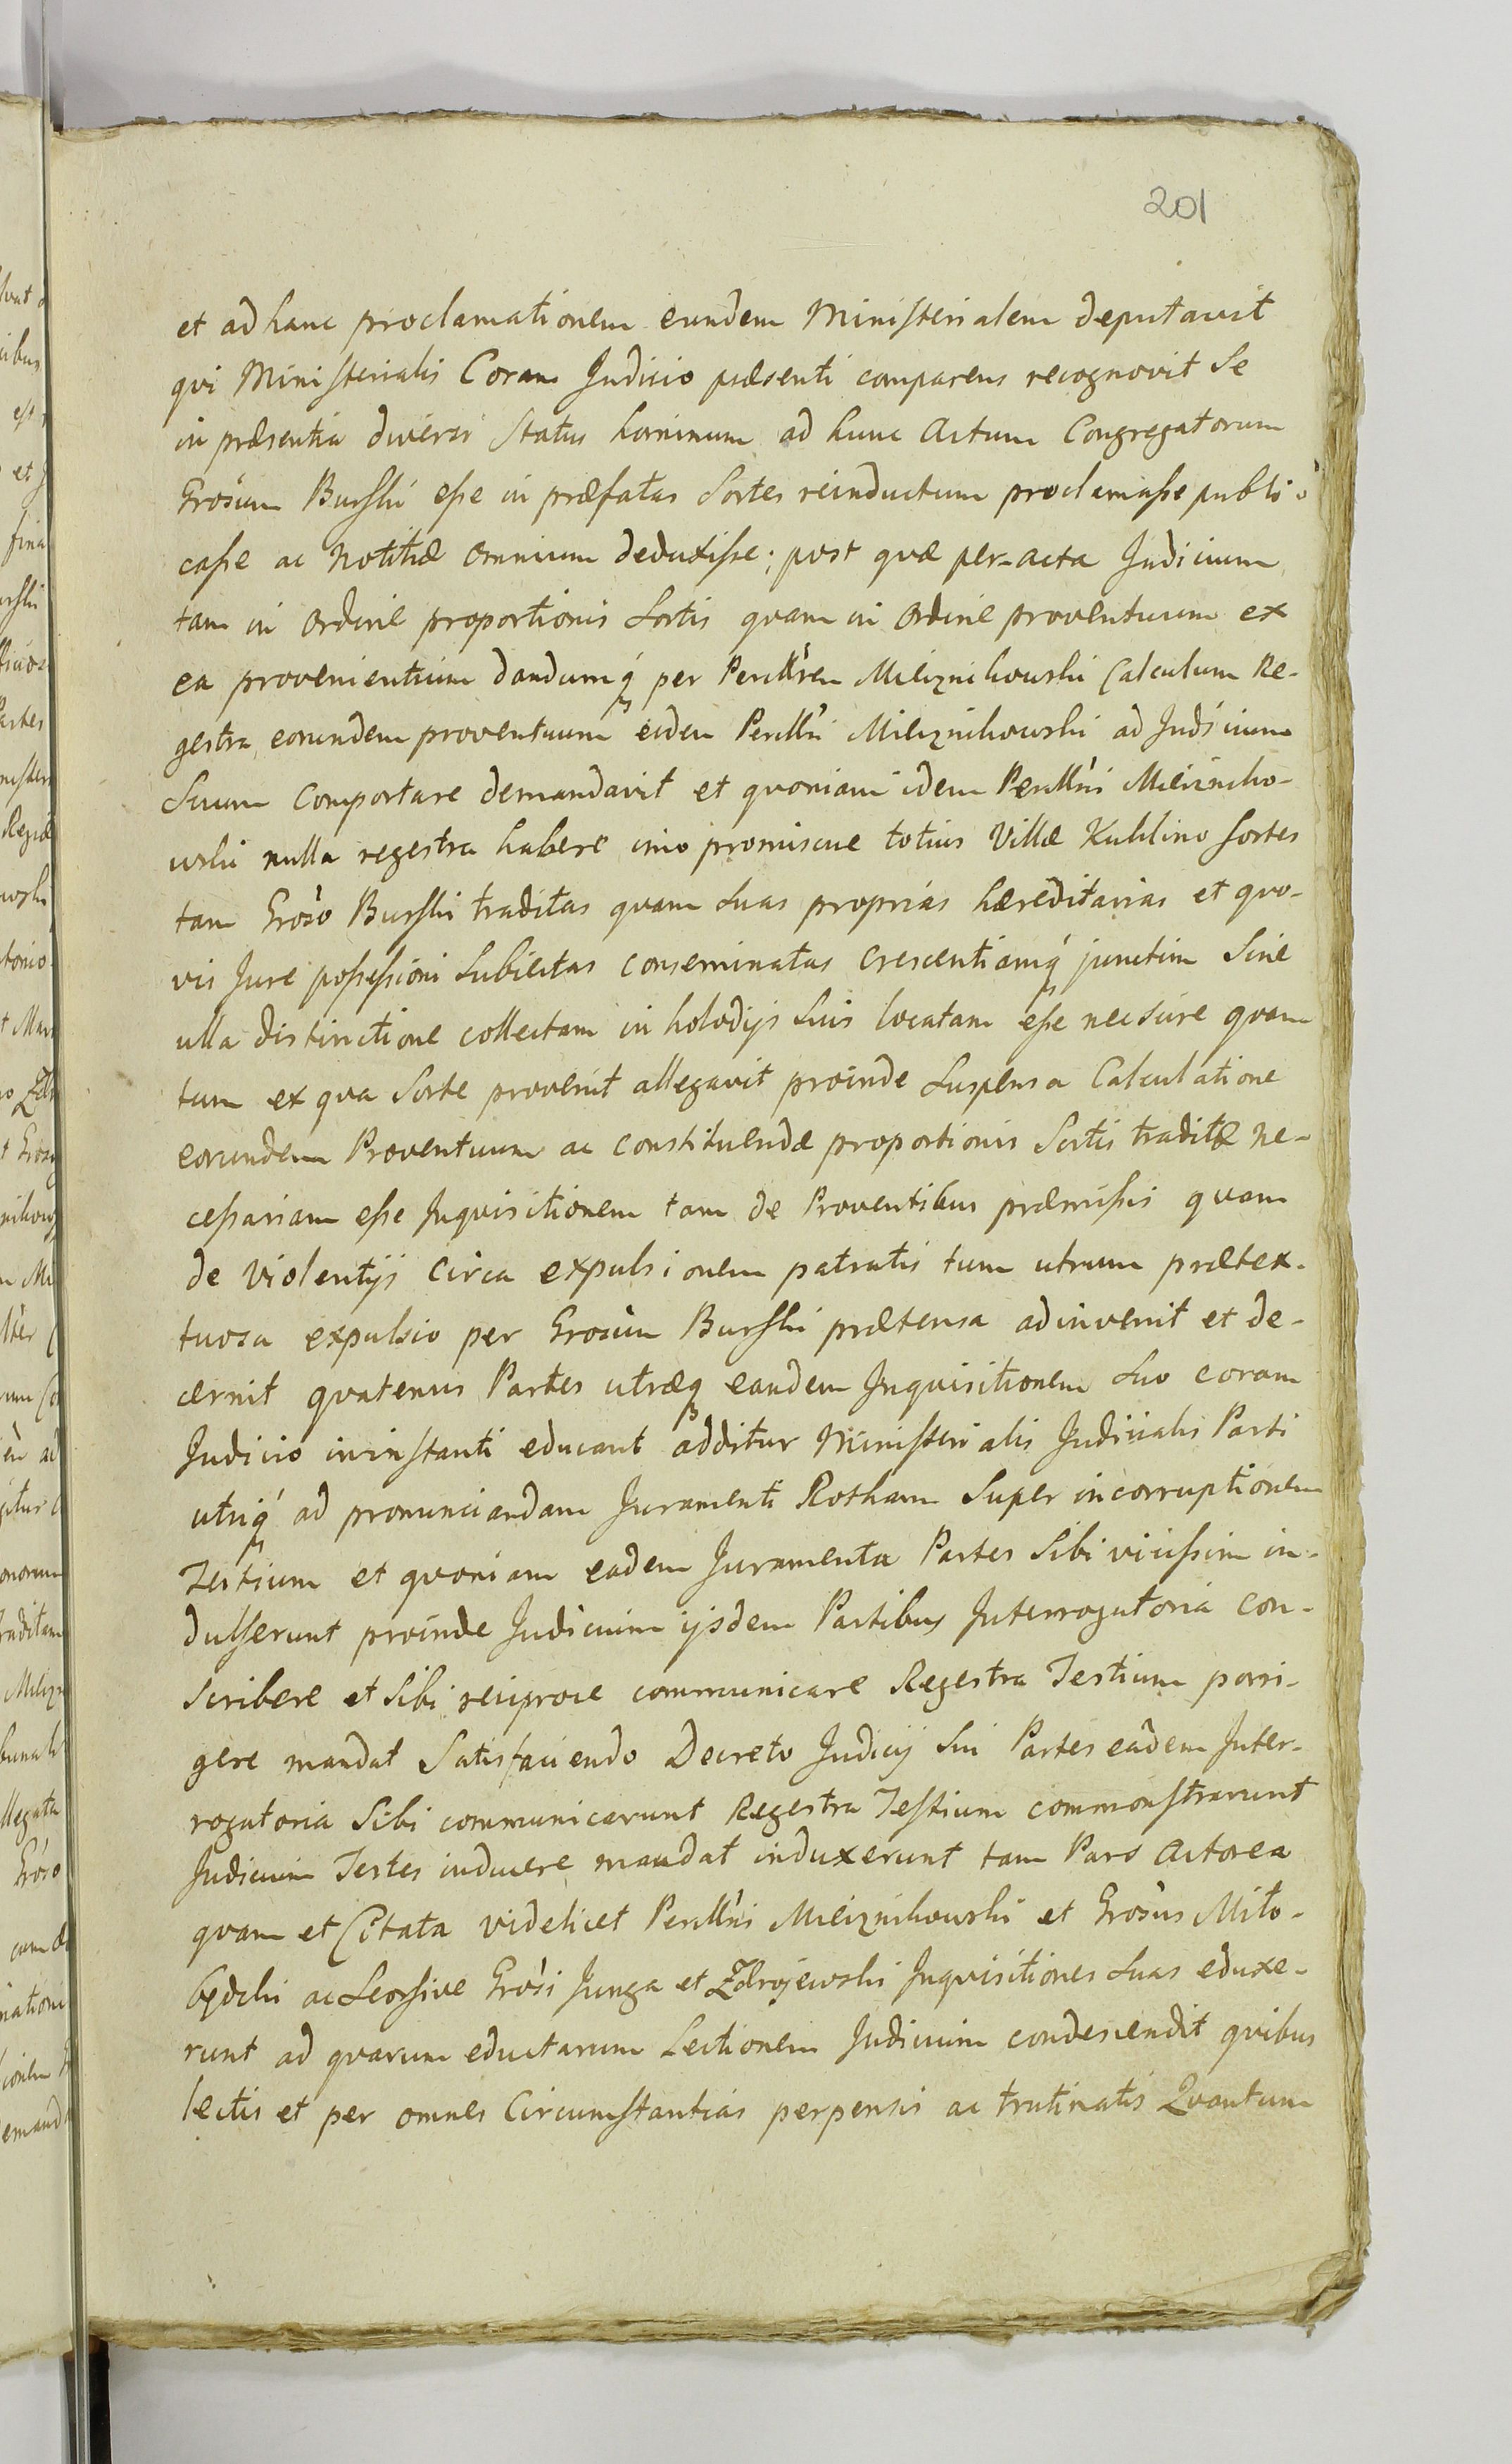 201
et ad hanc proclamationem eundem Ministerialem deputavit
qui Ministerialis Coram Judicio præsenti comparens recognovit Se
in præsentia diversi Status hominum ad hunc Actum Congregatorum
Grosum Burski esse in præfatas Sortes reinductum proclamasse publi-
casse ac Notitiæ omnium deduxisse; post quæ per-acta Judicium
tam in Ordine proportionis Sortis quam in Ordine proventuum ex
ea provenientium dandumq́ per Perillŕem Miliznikowski Calculum Re-
gestra eorundem proventuum eidem Perillŕi Miliznikowski ad Judicium
Suum Comportare demandavit et quoniam idem Perillŕis Milizniko-
wski nulla regestra habere imo promiscue totius Villæ Kuklino Sortes
tam Groso Burski traditas quam Suas proprias hæreditarias et quo-
vis Jure possessioni Subiectas conseminatas Crescentiamq́ junctim Sine
ulla distinctione collectam in holodijs Suis locatam esse nec scire quan
tum ex qua Sorte provenit allegavit proinde Suspensa Calculatione
eorundem Proventuum ac constituendæ proportionis Sortis traditæ ne-
cessariam esse Inquisitionem tam de Proventibus præmissis quam
de Violentijs circa expulsionem patratis tum utrum prætex-
tuosa expulsio per Grosum Burski prætensa adinvenit et de-
cernit quatenus Partes utræq eandem Inquisitionem Suo coram
Judicio ininstanti educant additur Ministerialis Judicialis Parti
utriq́ ad pronunciandam Juramenti Rotham Super incorruptionem
Testium et quoniam eadem Juramenta Partes Sibi vicissim in-
dulserunt proinde Judicium ijsdem Partibus Interrogatoria con-
scribere et Sibi reciproce communicare Regestra Testium porri-
gere mandat Satisfaciendo Decreto Judicij Sui Partes eadem Inter-
rogatoria Sibi communicarunt Regestra Testium commonstrarunt
Judicium Testes inducere mandat induxerunt tam Pars Actorea
quam et Citata videlicet Perillŕis Miliznikowski et Grosus Miło-
będzki ac Seorsive Grosi Junga et Zdrojewski Inquisitiones Suas eduxe-
runt ad quarum eductarum Lectionem Judicium condescendit quibus
lectis et per omnes Circumstantias perpensis ac trutinatis Quantum